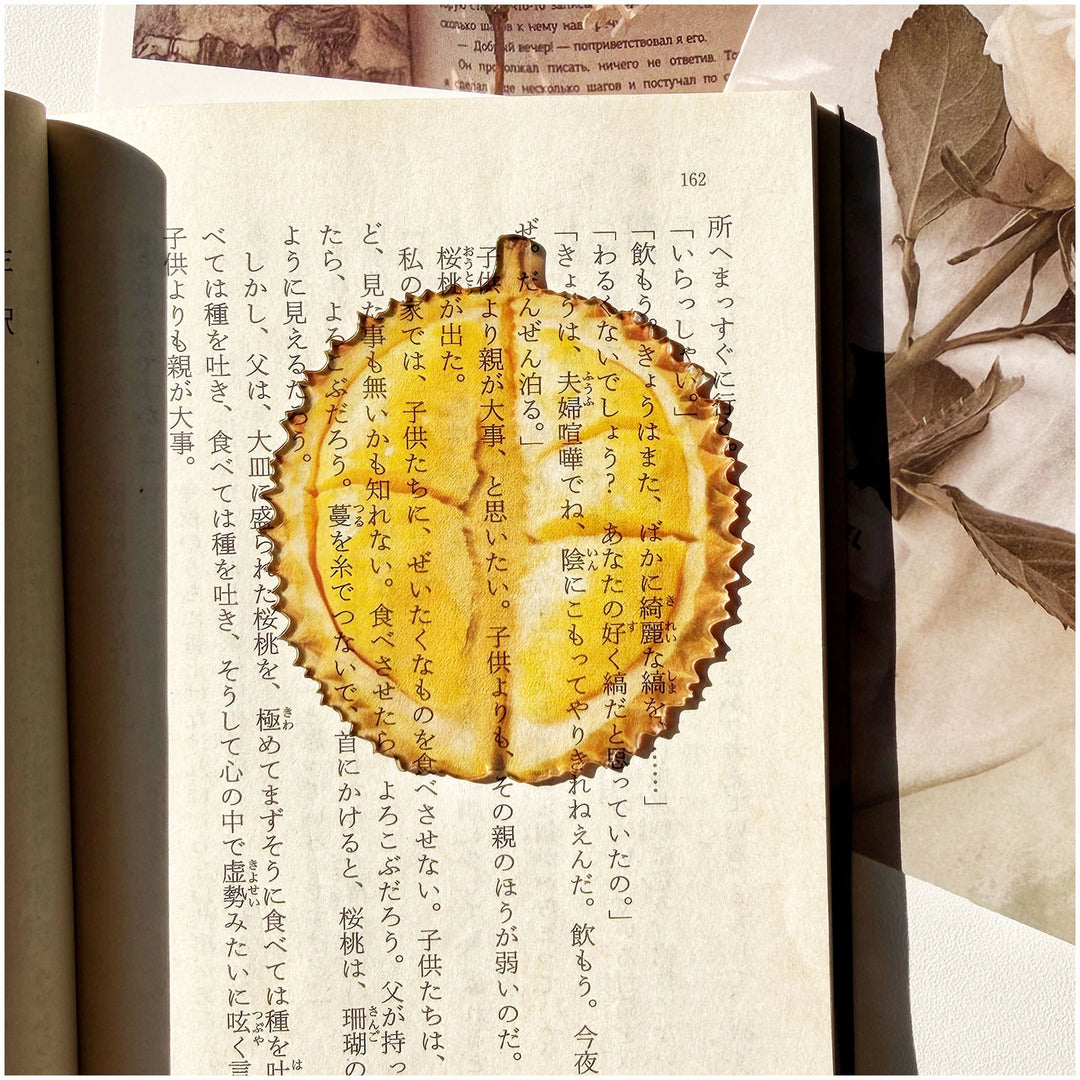 сколько шагов к нему
— Добрый вечер! — поприветствовал я его.
Он продолжал писать, ничего не ответив. То
несколько шагов и постучал по
162
所へまっすぐに行く。
「いらっしゃい。」
「飲もう。きょうはまた、ばかに綺麗な縞を……」
「わるくないでしょう？ あなたの好く縞だと思っていたの。」
「きょうは、夫婦喧嘩でね、陰にこもってやりきれねえんだ。飲もう。今夜
ぜ。だんぜん泊る。」
子供より親が大事、と思いたい。子供よりも、その親のほうが弱いのだ。
桜桃が出た。
私の家では、子供たちに、ぜいたくなものを食べさせない。子供たちは、
ど、見た事も無いかも知れない。食べさせたら、よろこぶだろう。父が持っ
たら、よろこぶだろう。蔓を糸でつないで、首にかけると、桜桃は、珊瑚の
ように見えるだろう。
しかし、父は、大皿に盛られた桜桃を、極めてまずそうに食べては種を吐
べては種を吐き、食べては種を吐き、そうして心の中で虚勢みたいに呟く言
子供よりも親が大事。